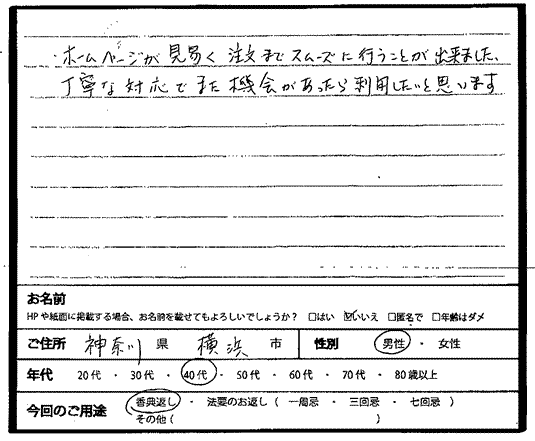 ・ホームページが見易く注文までスムーズに行うことが出来ました、
丁寧な対応でまた機会があったら利用したいと思います
お名前
HPや紙面に掲載する場合、お名前を載せてもよろしいでしょうか? □はい ☑いいえ □匿名で □年齢はダメ
ご住所 神奈川 県 横浜 市 性別 男性 ・ 女性
年代 20代 ・ 30代 ・ 40代 ・ 50代 ・ 60代 ・ 70代 ・ 80歳以上
今回のご用途 香典返し ・ 法要のお返し ( 一周忌 ・ 三回忌 ・ 七回忌 )
その他 ( )